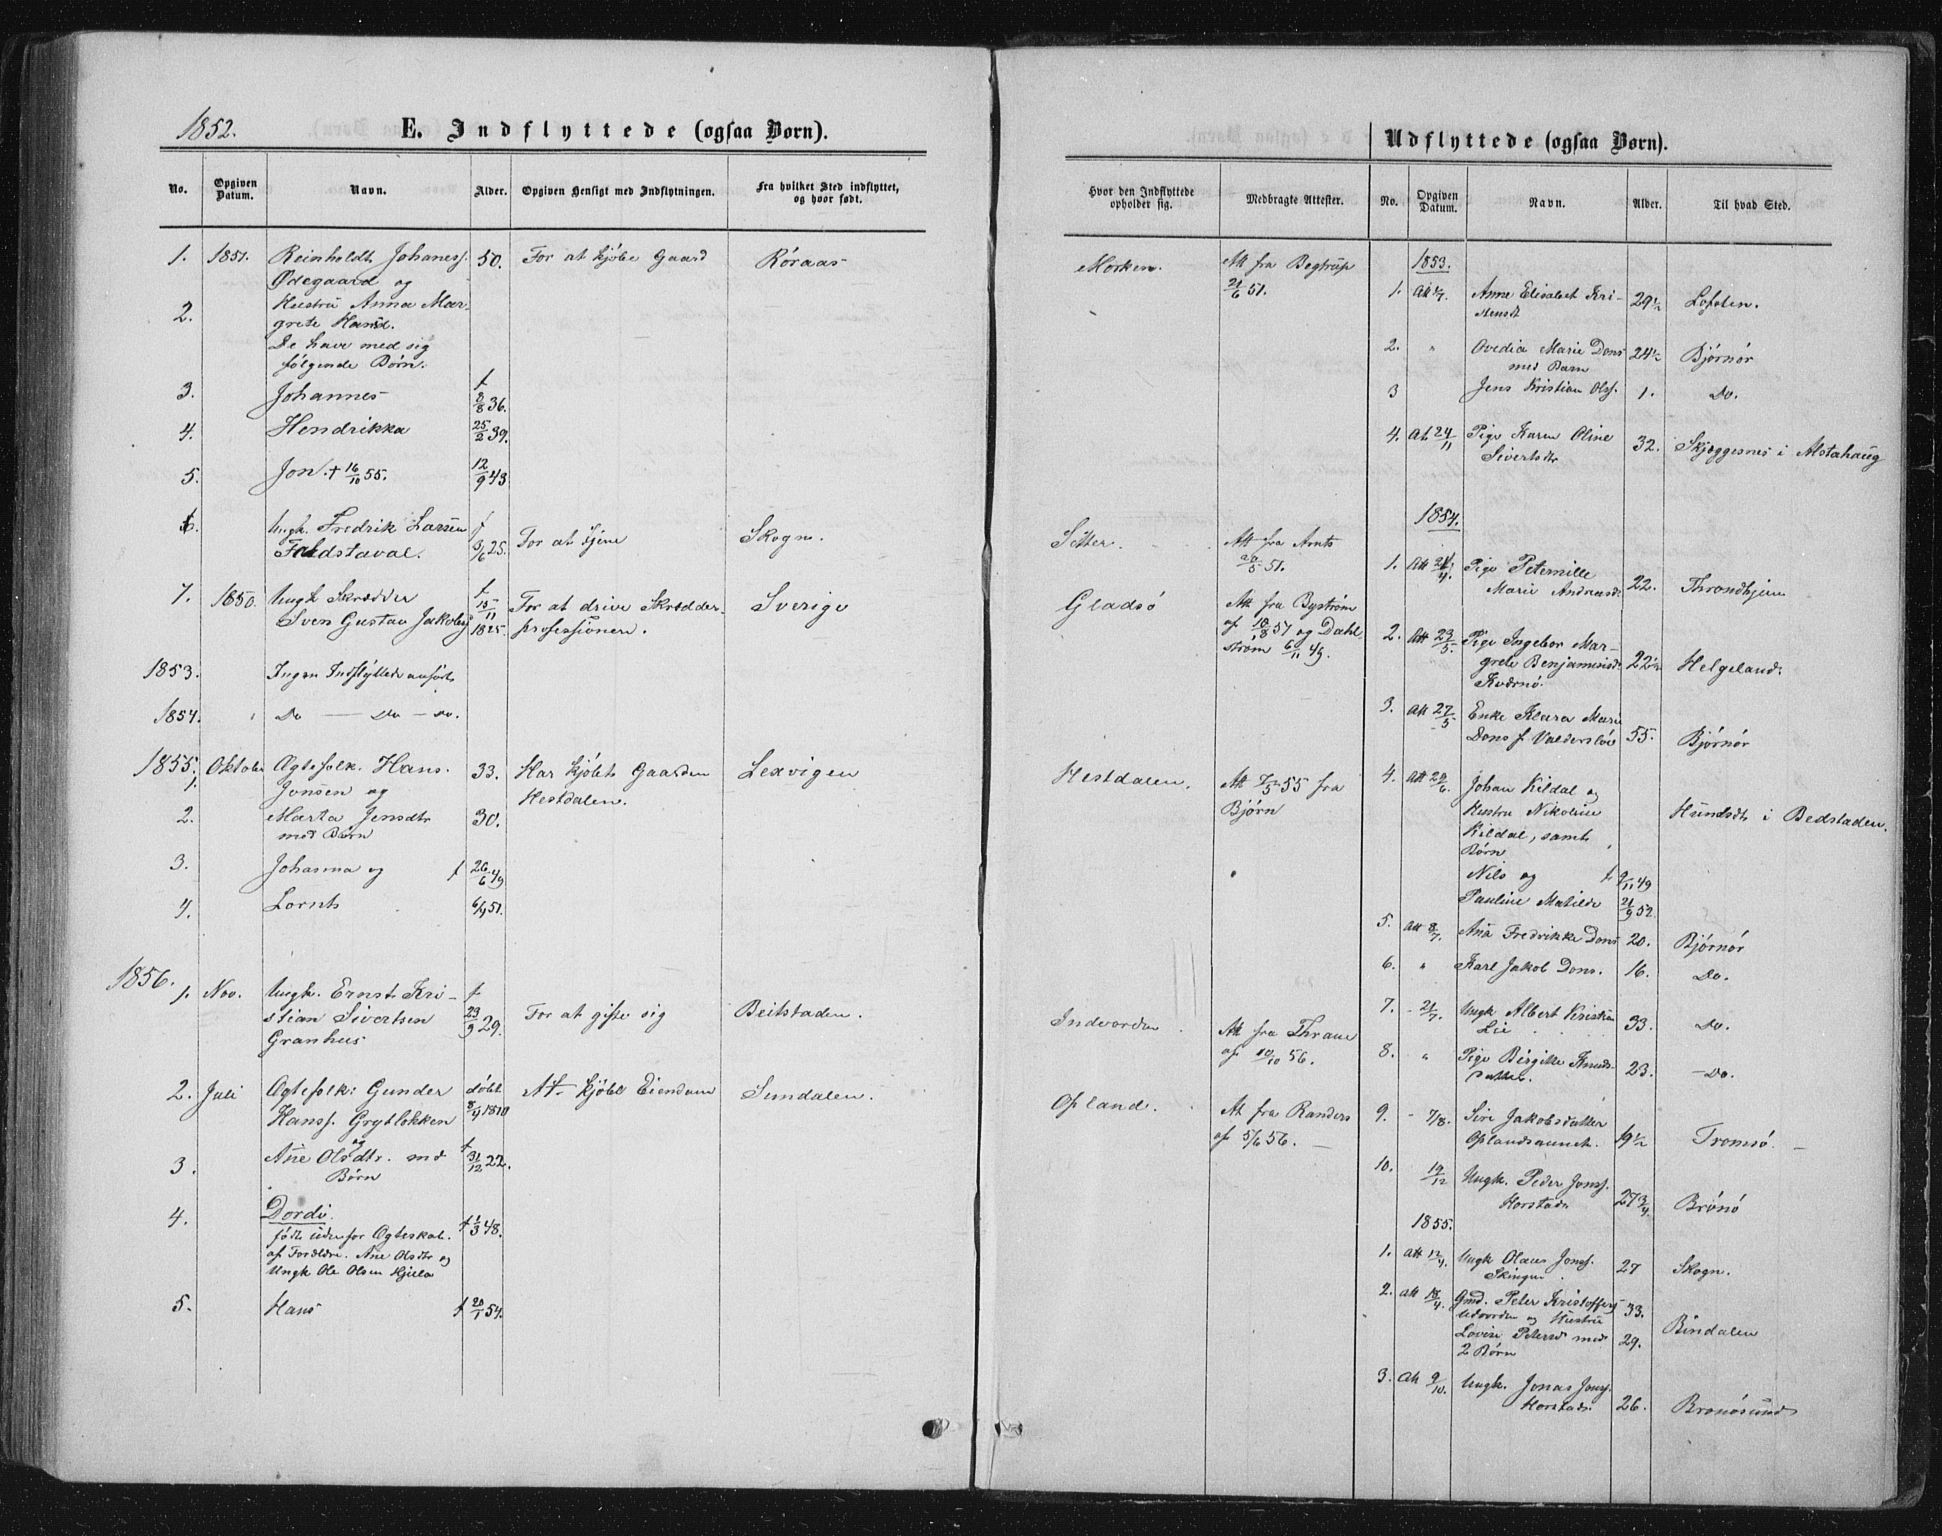 1852.
E. Indflyttede (ogsaa Børn).
No.
Opgiven Datum.
Navn.
Alder.
Opgiven Hensigt med Indflytningen.
Fra hvilket Sted indflyttet, og hvor født.
1. 1851. Reinholdt Johaness. 50. For at kjøbe Gaard Røraas
Ødegaard og
2. Hustru Anna Mar-
grete Hansd.
De have med sig
følgende Børn.
3. Johannes f 8/8 36.
4. Hendrikka 25/2 39.
5. Jon. + 16/10 55. 12/9 43
6. Ungk. Fredrik Larsen f 3/6 25. For at tjene Skogn.
Faldstaval.
7. 1850. Ungk Skrædder f 15/11 For at drive Skrædder- Sverige
Sven Gustav Jakobss 1825. professionen.
1853. Ingen Indflyttede anført
1854. Do — Do — Do.
1855. Oktober
1. Ægtefolk. Hans 33. Har kjøbt Gaarden Lexvigen
Jonsen og Hestdalen.
2. Marta Jensdtr 30.
med Børn
3. Johanna og f 26/6 49
4. Lornts 6/9 51.
1856.
1. Nov. Ungk. Ernst Kri- f 23/9 29. For at gifte sig Beitstaden.
stian Sivertsen
Granhus
2. Juli Ægtefolk: Gunder døbt 8/4 1810 At kjøbe Eiendom Sundalen.
Hanss. Grytbakken
og
3. Ane Olsdtr. med f 31/12 22.
Børn
4. Dordi. f 1/3 48.
født udenfor Ægteskab
af Forældre. Ane Olsdtr og
Ungk Ole Olsen Hjiela
5. Hans f 20/1 54.
Udflyttede (ogsaa Børn).
Hvor den Indflyttede opholder sig.
Medbragte Attester.
No.
Opgiven Datum.
Navn.
Alder.
Til hvad Sted.
Morken. Att fra Begtrup
21/6 51.
Setter. Att fra Arnts
20/5 51.
Gladsø Att fra Bystrøm
af 10/8 51 og Dahl-
strøm 6/11 49.
Hestdalen. Att 7/5 55 fra
Bjørn
Indvorden Att fra Thraue
af 10/10 56.
Opland. At fra Randers
af 5/6 56.
1853.
1. Att 1/7 Anne Elisabet Kri- 29 1/2 Lofoten.
stensdt
2. " Ovedia Marie Dons 24 1/2 Bjørnør
med Barn
3 Jens Kristian Olss. 1. Do.
4. At 24/11 Pige Karen Oline 32. Skjeggesnes i Alstahaug
Sivertsdtr
1854.
1. Att 21/4. Pige Peternille 22. Throndhjem
Marie Andreasd.
2. Att 23/5. Pige Ingebor Mar- 22 1/2 Helgeland.
grete Benjaminsd.
Kværnø.
3. Att 27/5 Enke Klara Marie 55. Bjørnør
Dons f. Valdersløv
4. Att 29/6. Johan Kildal og Hundsdt i Bedstaden.
Hustru Nikoline
Kildal, samt
Børn
Nils og f 9/11 49
Pauline Matilde 21/9 52
5. Att 8/7. Ana Fredrikke Dons 20. Bjørnør
6. " Karl Jakob Dons. 16. Do.
7. - 21/7. Ungk Albert Kristian 33. Do.
Lie
8. " Pige Birgitte Knuds 23. - Do.
datter.
9. - 7/8. Siri Jakobsdatter 19 1/2 Tromsø.
Oplandsaunet.
10. 19/12 Ungk. Peder Jonss. 27 3/4 Brønø
Horstad
1855.
1. Att 12/4. Ungk Olaus Jonss. 27 Skogn.
2. Att 18/4. Gmd. Peter Kristoffers 33. Bindalen
Udvorden og Hustru
Lovise Petersd med 29.
2 Børn
3. Att 9/10. Ungk. Jonas Jonss. 26. Brønøsund
Horstad.